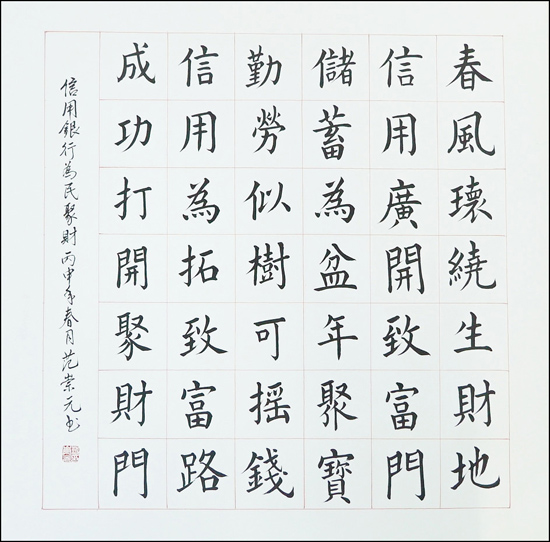 春風瓌繞生財地
信用廣開致富門
儲蓄為盆年聚寶
勤勞似樹可摇錢
信用為拓致富路
成功打開聚財門
信用銀行為民聚財丙申年春月范崇元書